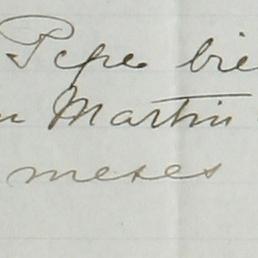 Pepe bie
n Martin
meses